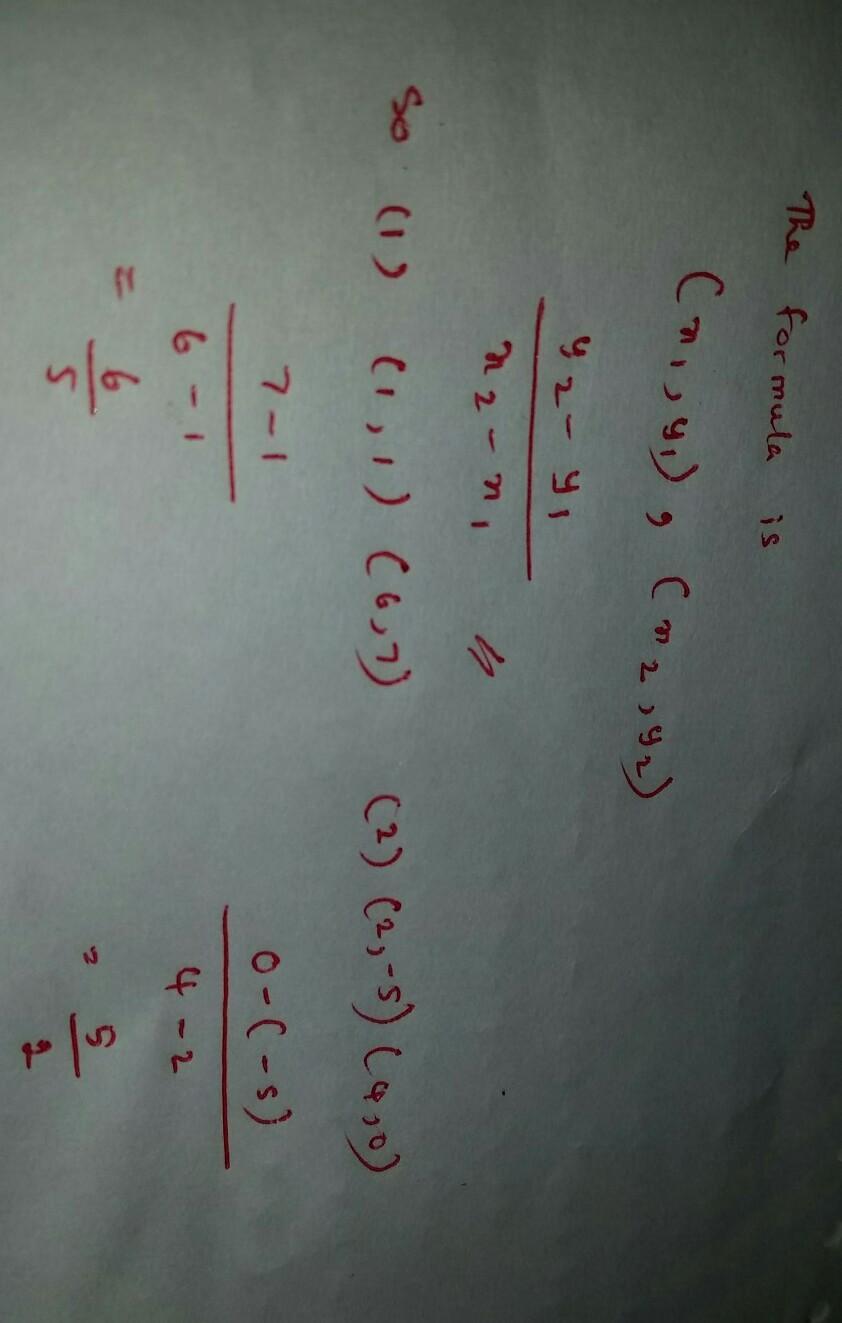 The formula is
(x1, y1), (x2, y2)
y2 - y1
x2 - x1
So (1) (1,1) (6,7) (2) (2,-5) (4,0)
7-1 0-(-5)
6-1 4-2
= 6/5 = 5/2